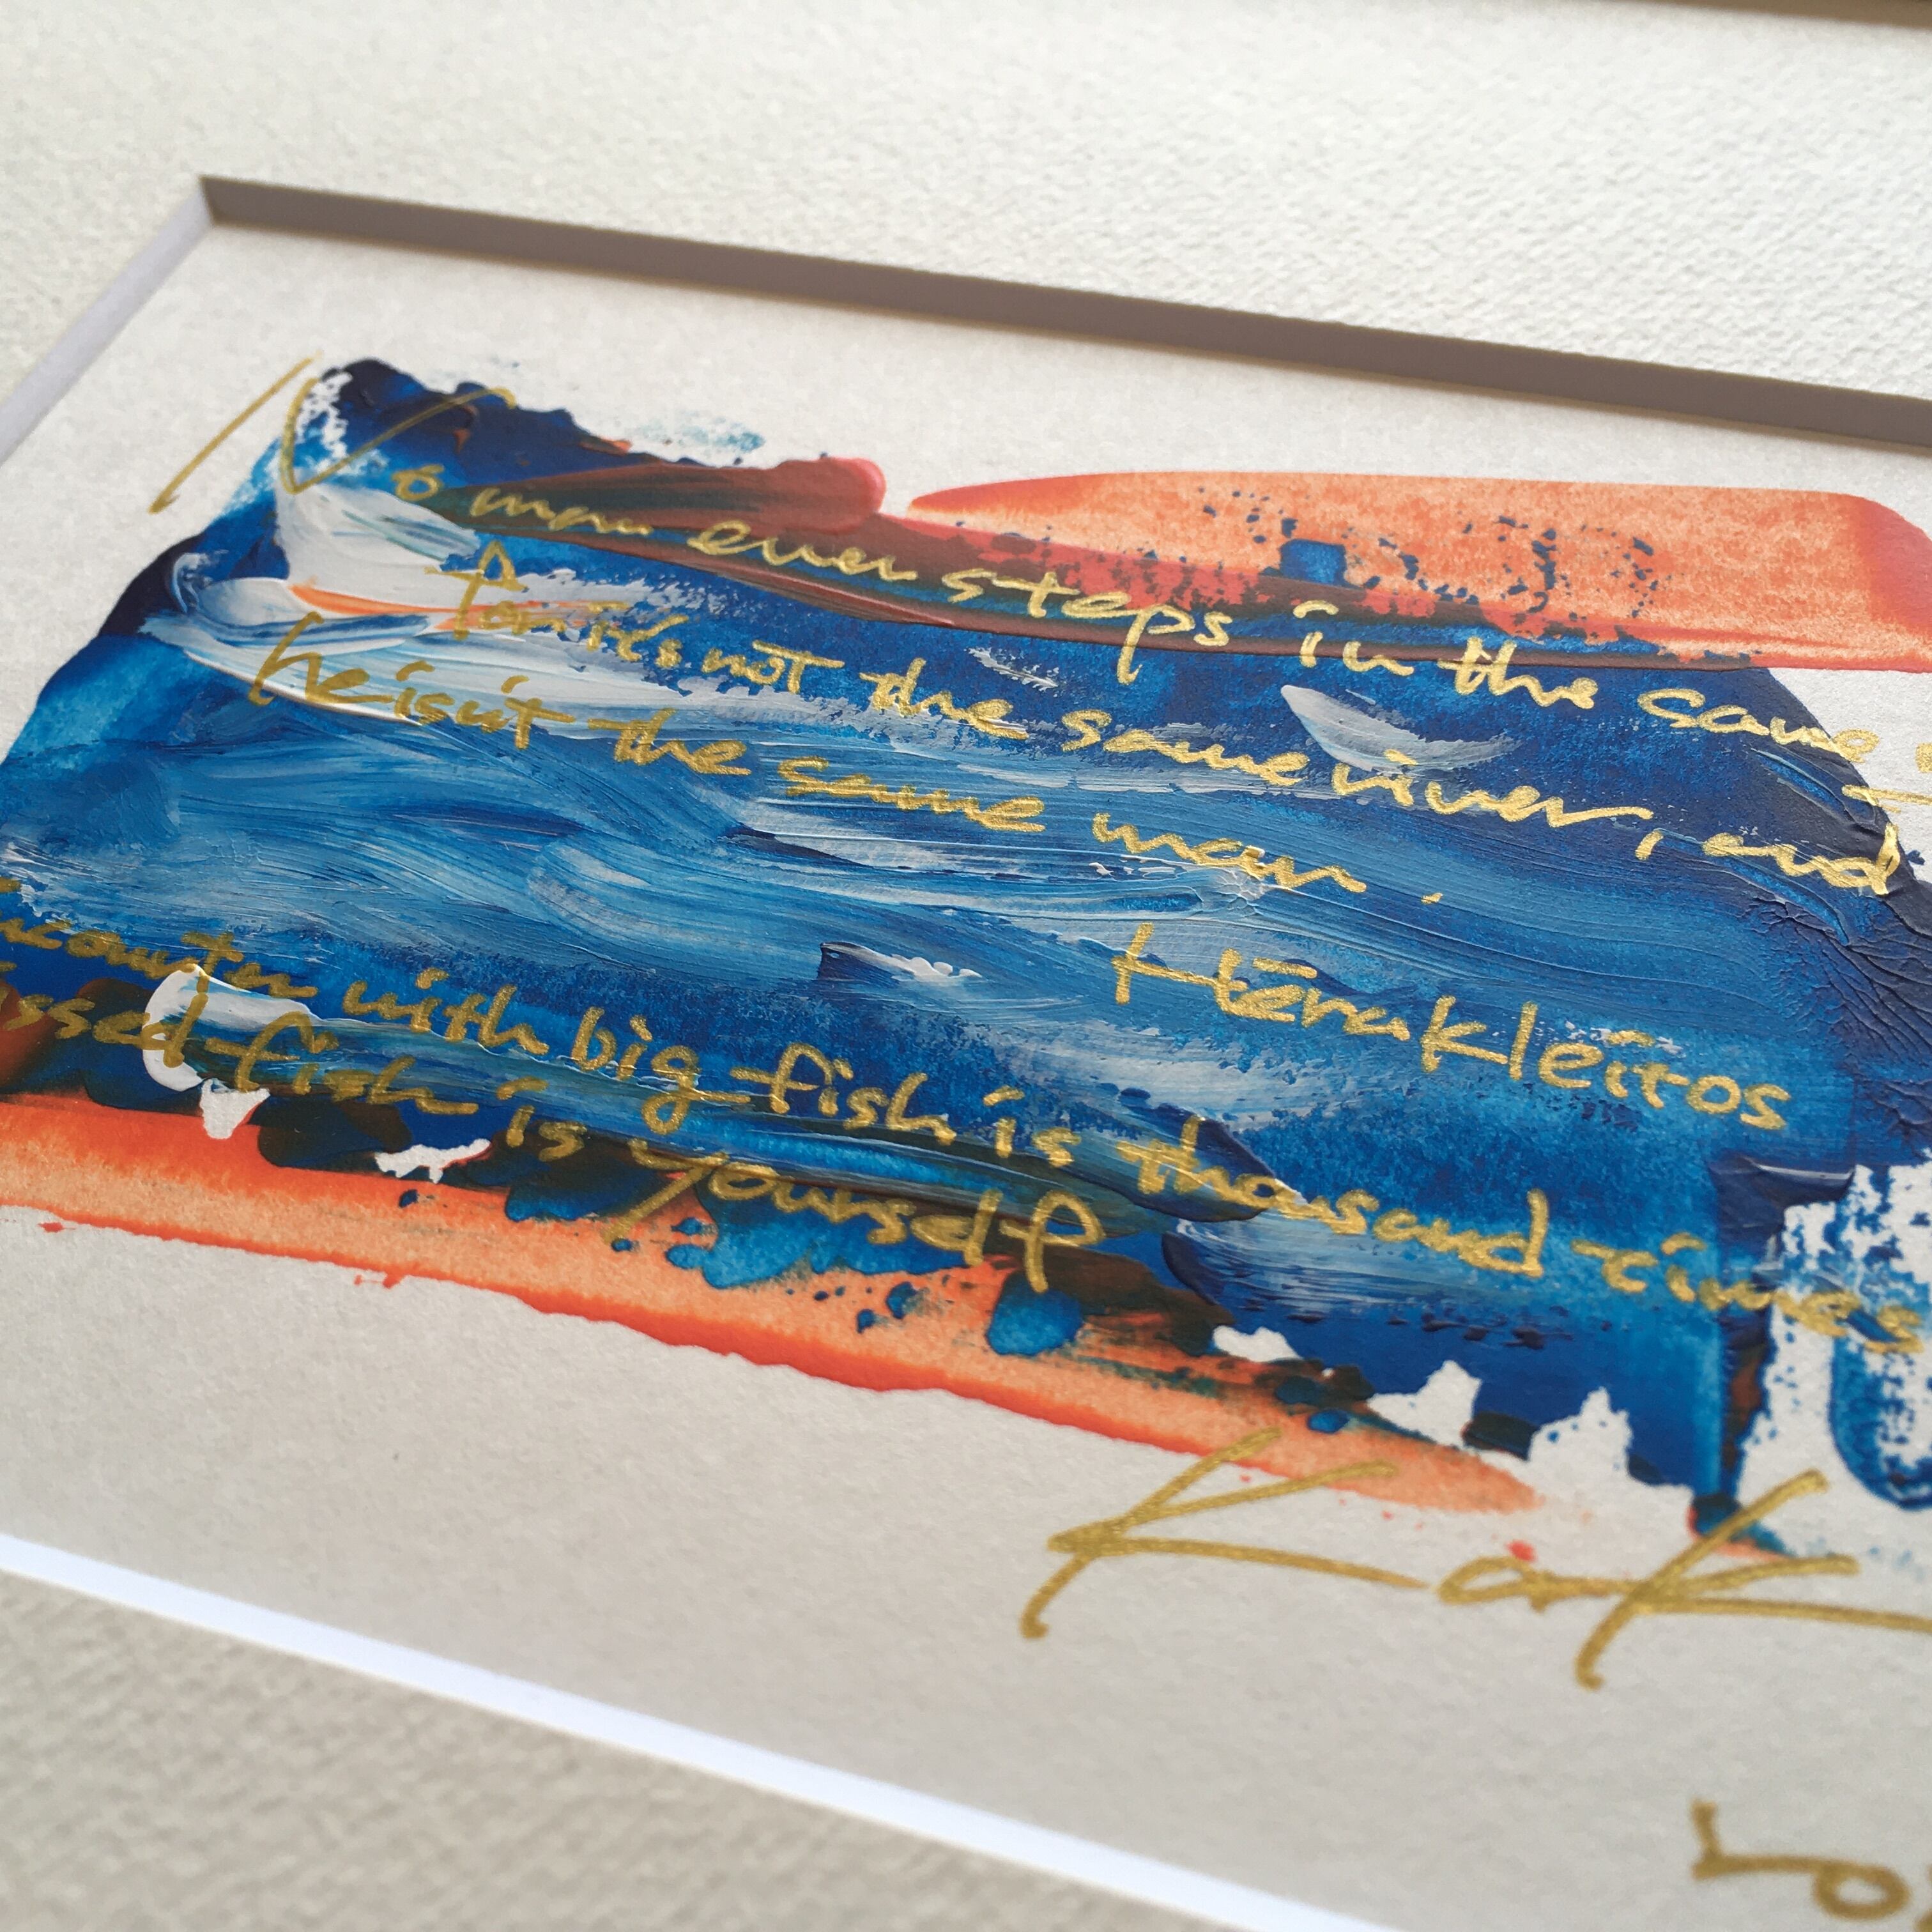 No man ever steps in the same
for it's not the same river, and
he isn't the same man.
Hērakleitos
with big fish is thousand times
fish is yourself
Kak